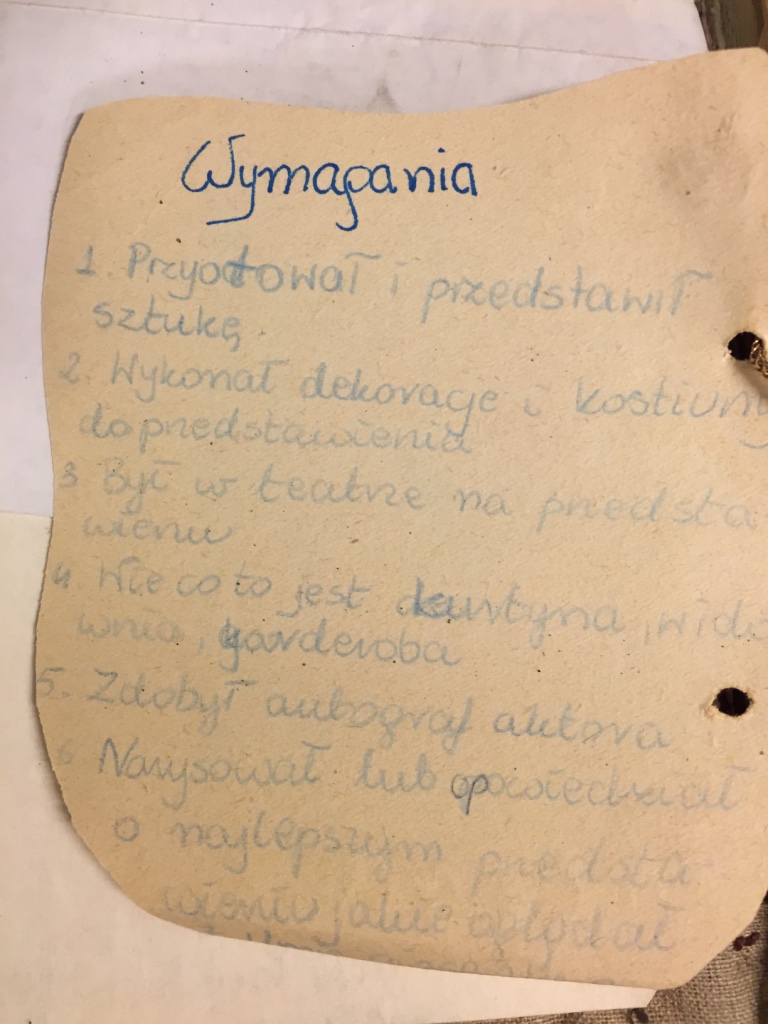 Wymagania
1. Przygotował i przedstawił
sztukę
2. Wykonał dekoracje i kostiumy
do przedstawienia
3 Był w teatrze na przedsta-
wieniu
4 Wie co to jest kurtyna, wido
wnia, garderoba
5. Zdobył autograf aktora
6 Narysował lub opowiedział
o najlepszym przedsta-
wieniu jakie oglądał